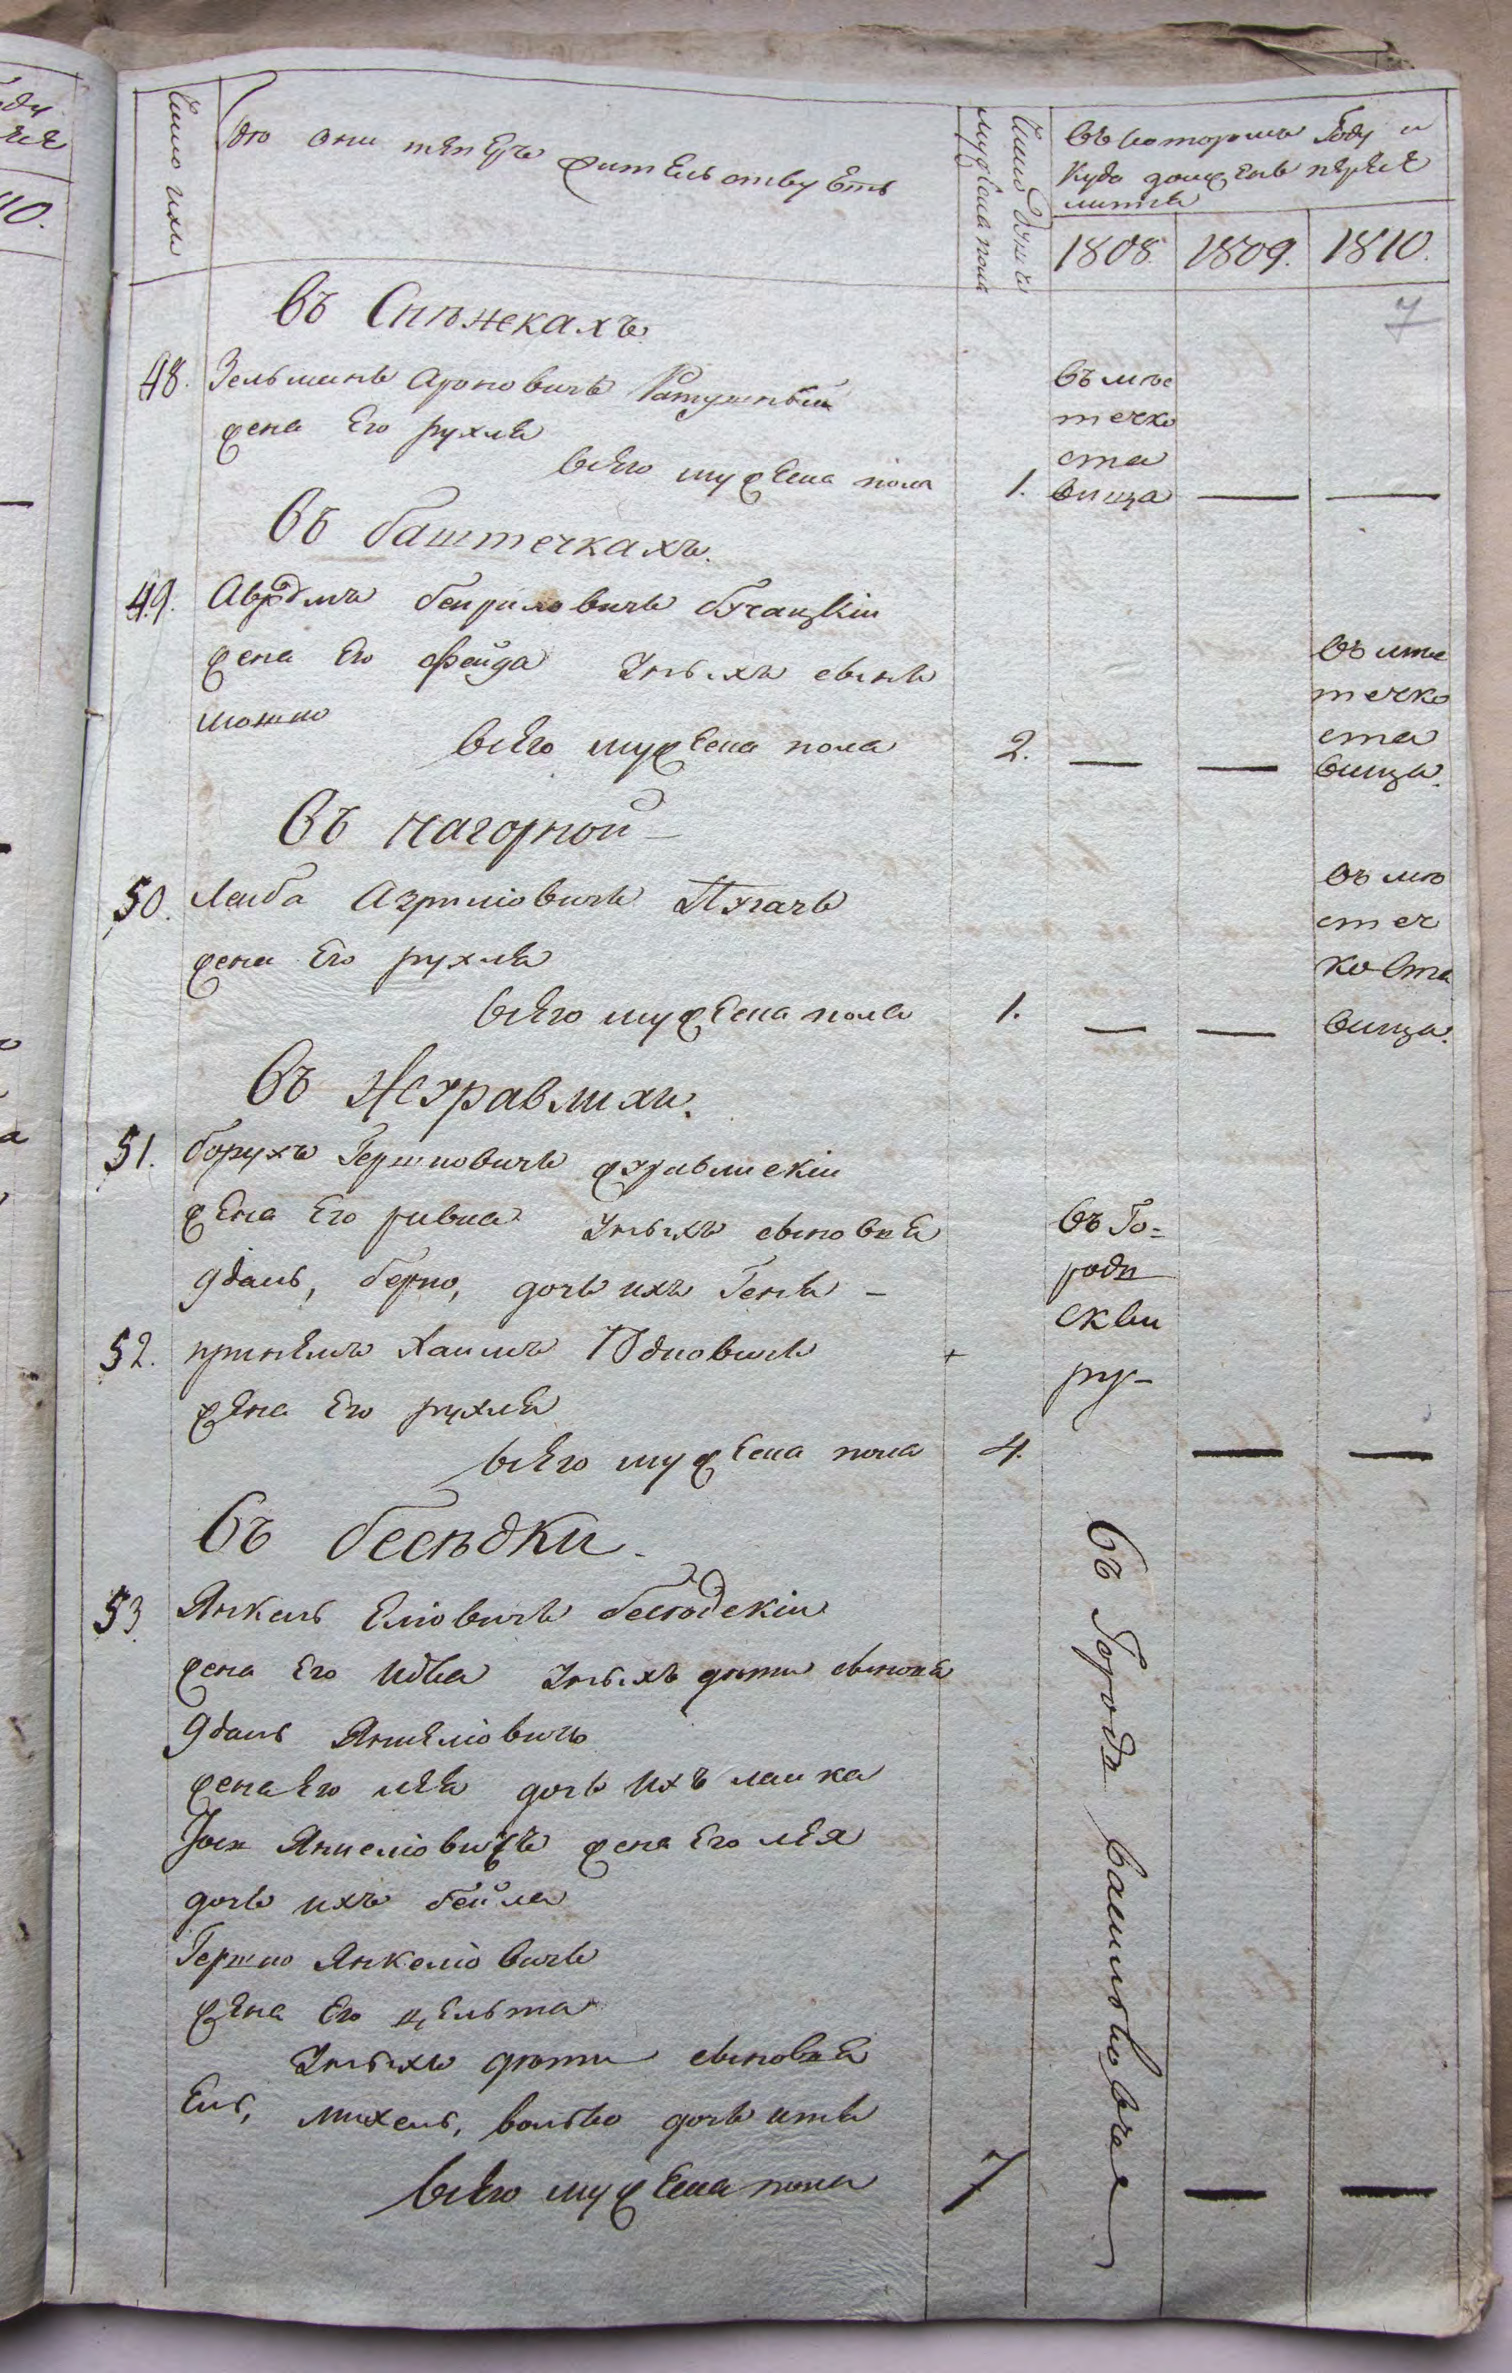 Число ихъ
Где они тепѣръ жительствуетъ
Число душъ мужеска пола
въ которомъ Году и
куда долженъ пересе
лится
1808.
1809.
1810.
7
въ Снѣжкахъ
48. Зельманъ Ароновичъ Ратушный
жена Его рухля
всего мужеска пола 1.
въ мѣс
течко
ста
вища
въ баштечкахъ.
49. Аврамъ беириловичъ бучацкіи
жена Его фрейда Унихъ сынъ
мошко
всего мужеска пола 2.
въ мѣс
течко
ста
вища.
въ нагорной
50. Леиба Азриліовичъ Пугачъ
жена Его рухля
всего мужеска пола 1.
въ мѣ
стеч
ко ста
вища.
въ Журавлихи.
51. борухъ Гершковичъ журавлискіи
жена Его ривка Унихъ сыновья
Удаль, берко, дочь ихъ Геня
52. приемлъ Хаимъ Юдковичъ
жена Его рухля
всего мужеска пола 4.
въ Го=
родѣ
скви
ру
въ бесѣдки.
53 Янкель Еліовичъ бесѣдскіи
жена Его Идва Унихъ дѣти сыновя
Удаль Янкеліовичъ
жена Его лея дочь ихъ лаика
Іось Янкеліовичъ жена Его лея
дочь ихъ беила
Гершко Янкеліовичъ
жена Его цельта
Унихъ дѣти сыновья
Ель, михель, волько дочь итя
всего мужеска пола 7
въ Городѣ василковѣ